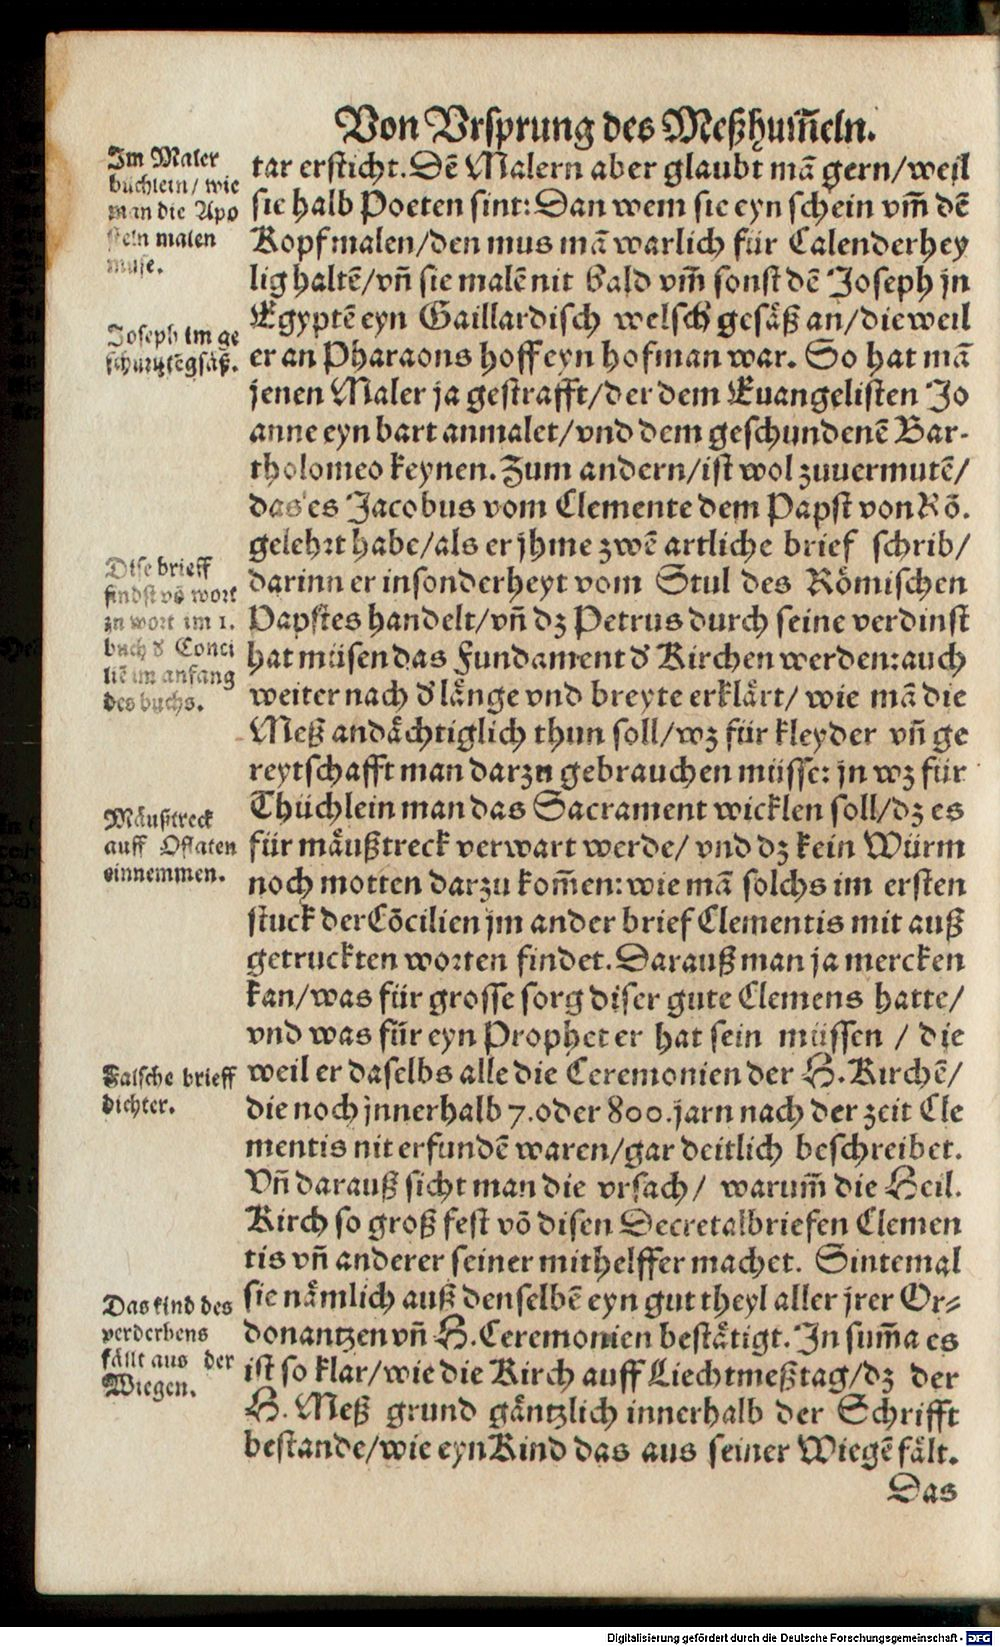 Von Vrsprung des Meßhum̃eln.
tar ersticht. Dẽ Malern aber glaubt mã gern/weil
sie halb Poeten sint: Dan wem sie eyn schein vm̃ dẽ
Kopf malen/den mus mã warlich für Calenderhey
lig haltẽ/vñ sie malẽ nit bald vm̃ sonst dẽ Joseph jn
Egyptẽ eyn Gaillardisch welsch gesäß an/dieweil
er an Pharaons hoff eyn hofman war. So hat mã
jenen Maler ja gestrafft/der dem Euangelisten Jo
anne eyn bart anmalet/vnd dem geschundenẽ Bar-
tholomeo keynen. Zum andern/ist wol zuuermutẽ/
das es Jacobus vom Clemente dem Papst von Rõ.
gelehrt habe/als er jhme zwẽ artliche brief schrib/
darinn er insonderheyt vom Stul des Römischen
Papstes handelt/vñ dz Petrus durch seine verdinst
hat müsen das Fundament d' Kirchen werden: auch
weiter nach d' länge vnd breyte erklärt/ wie mã die
Meß andächtiglich thun soll/wz für kleyder vñ ge
reytschafft man darzu gebrauchen müsse: jn wz für
Thüchlein man das Sacrament wicklen soll/dz es
für mäußtreck verwart werde/ vnd dz kein Würm
noch motten darzu kom̃en: wie mã solchs im ersten
stuck der Cõcilien jm ander brief Clementis mit auß
getruckten worten findet. Darauß man ja mercken
kan/was für grosse sorg diser gute Clemens hatte/
vnd was für eyn Prophet er hat sein müssen / die
weil er daselbs alle die Ceremonien der H. Kirchẽ/
die noch jnnerhalb 7. oder 800. jarn nach der zeit Cle
mentis nit erfundẽ waren/gar deitlich beschreibet.
Vñ darauß sicht man die vrsach/ warum̃ die Heil.
Kirch so groß fest võ disen Decretalbriefen Clemen
tis vñ anderer seiner mithelffer machet. Sintemal
sie nämlich auß denselbẽ eyn gut theyl aller jrer Or-
donantzen vñ H. Ceremonien bestätigt. In sum̃a es
ist so klar/wie die Kirch auff Liechtmeßtag/dz der
H. Meß grund gäntzlich innerhalb der Schrifft
bestande/wie eyn Kind das aus seiner Wiegẽ fält.
Das
Im Maler
büchlein/ wie
man die Apo
steln malen
muse.
Joseph im ge
schurtztẽ gsäß.
Dise brieff
findst võ wort
zu wort im 1.
buch d' Conci
liẽ im anfang
des buchs.
Mäußtreck
auff Oflaten
einnemmen.
Falsche brieff
dichter.
Das kind des
verderbens
fällt aus der
Wiegen.
Digitalisierung gefördert durch die Deutsche Forschungsgemeinschaft - DFG